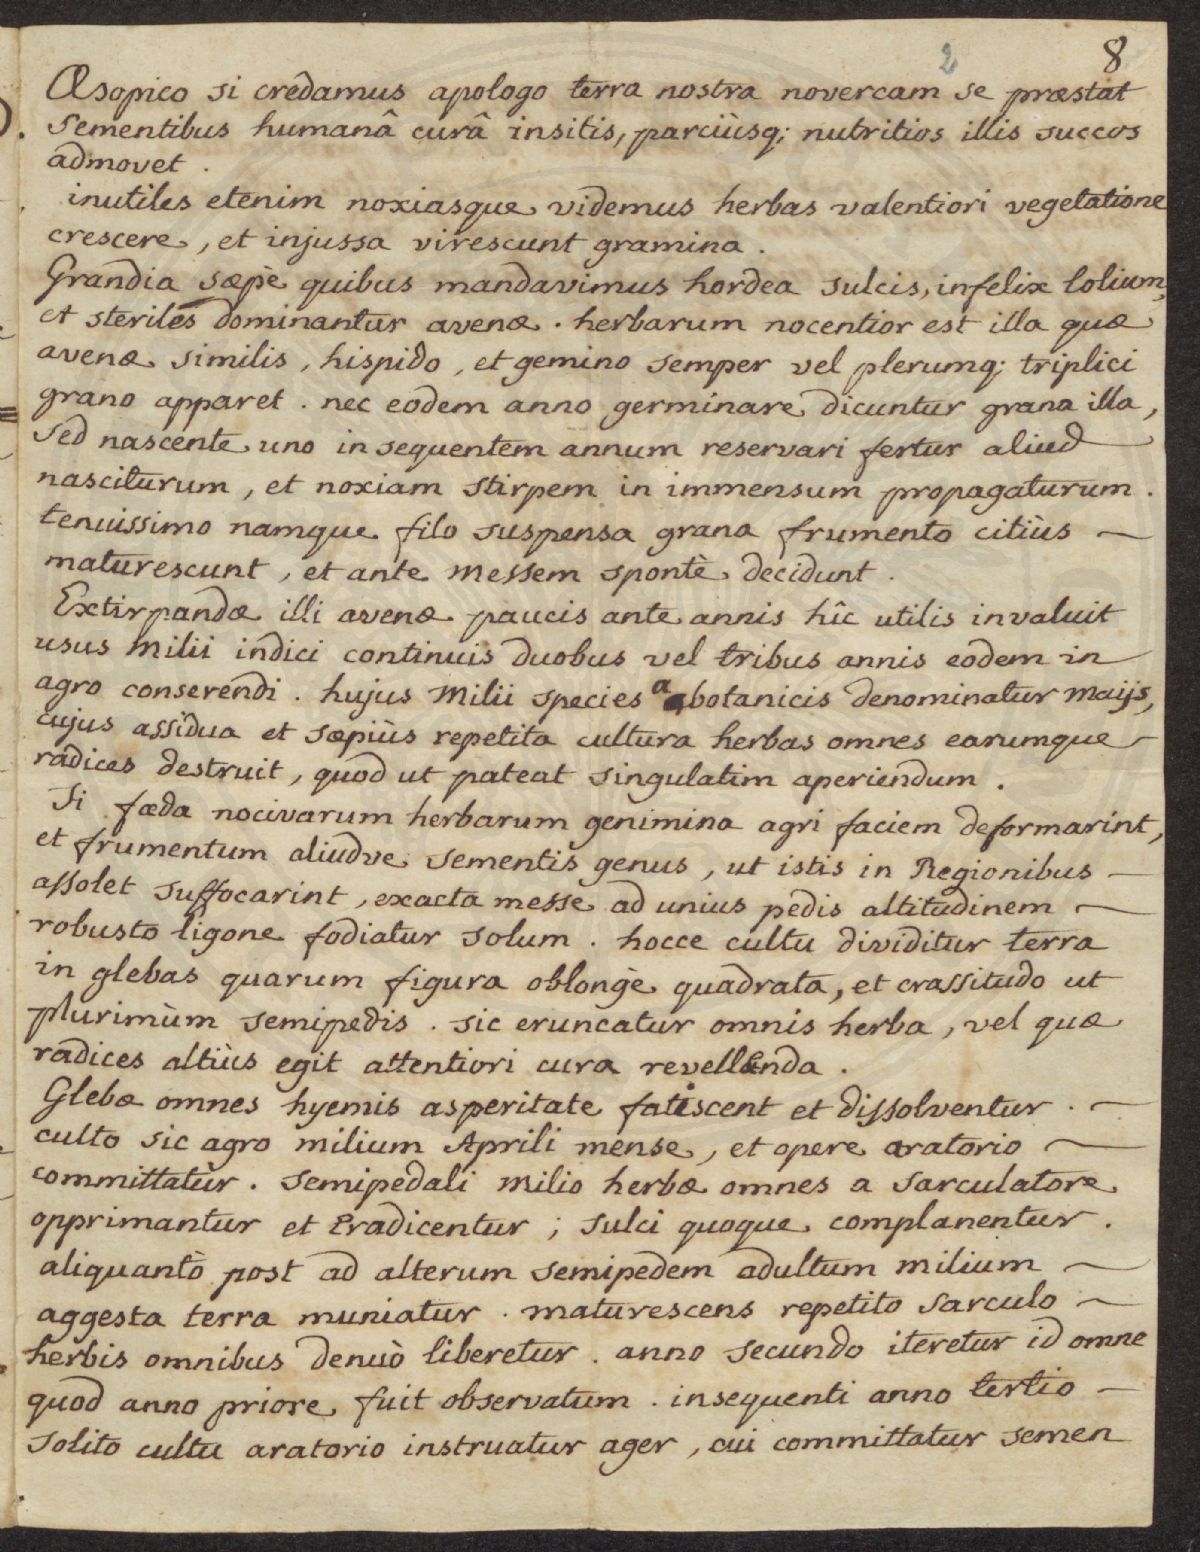 2 8
Æsopico si credamus apologo terra nostra novercam se præstat
sementibus humanâ curâ insitis, parciùsq; nutritios illis succos
admovet.
inutiles etenim noxiasque videmus herbas valentiori vegetatione
crescere, et injussa virescunt gramina.
Grandia sæpè quibus mandavimus hordea sulcis, infelix lolium,
et steriles dominantur avenæ. herbarum nocentior est illa quæ
avenæ similis, hispido, et gemino semper vel plerumq; triplici
grano apparet. nec eodem anno germinare dicuntur grana illa,
sed nascente uno in sequentem annum reservari fertur aliud
nasciturum, et noxiam stirpem in immensum propagaturum.
tenuissimo namque filo suspensa grana frumento citiùs —
maturescunt, et ante messem spontè decidunt.
Extirpandæ illi avenæ paucis ante annis hîc utilis invaluit
usus milii indici continuis duobus vel tribus annis eodem in
agro conserendi. hujus Milii species a botanicis denominatur maijs,
cujus assidua et sæpiùs repetita cultura herbas omnes earumque
radices destruit, quod ut pateat singulatim aperiendum.
Si fæda nocivarum herbarum genimina agri faciem deformarint,
et frumentum aliudve sementis genus, ut istis in Regionibus —
assolet suffocarint, exacta messe ad unius pedis altitudinem —
robusto ligone fodiatur solum. hocce cultu dividitur terra
in glebas quarum figura oblongè quadrata, et crassitudo ut
plurimùm semipedis. sic eruncatur omnis herba, vel quæ
radices altiùs egit attentiori cura revellenda.
Glebæ omnes hyemis asperitate fatiscent et dissolventur. —
culto sic agro milium Aprili mense, et opere aratorio —
committatur. semipedali milio herbæ omnes a sarculatore
opprimantur et Eradicentur; sulci quoque complanentur.
aliquantò post ad alterum semipedem adultum milium —
aggesta terra muniatur. maturescens repetito sarculo —
herbis omnibus denuò liberetur. anno secundo iteretur id omne
quod anno priore fuit observatum. insequenti anno tertio —
solito cultu aratorio instruatur ager, cui committatur semen